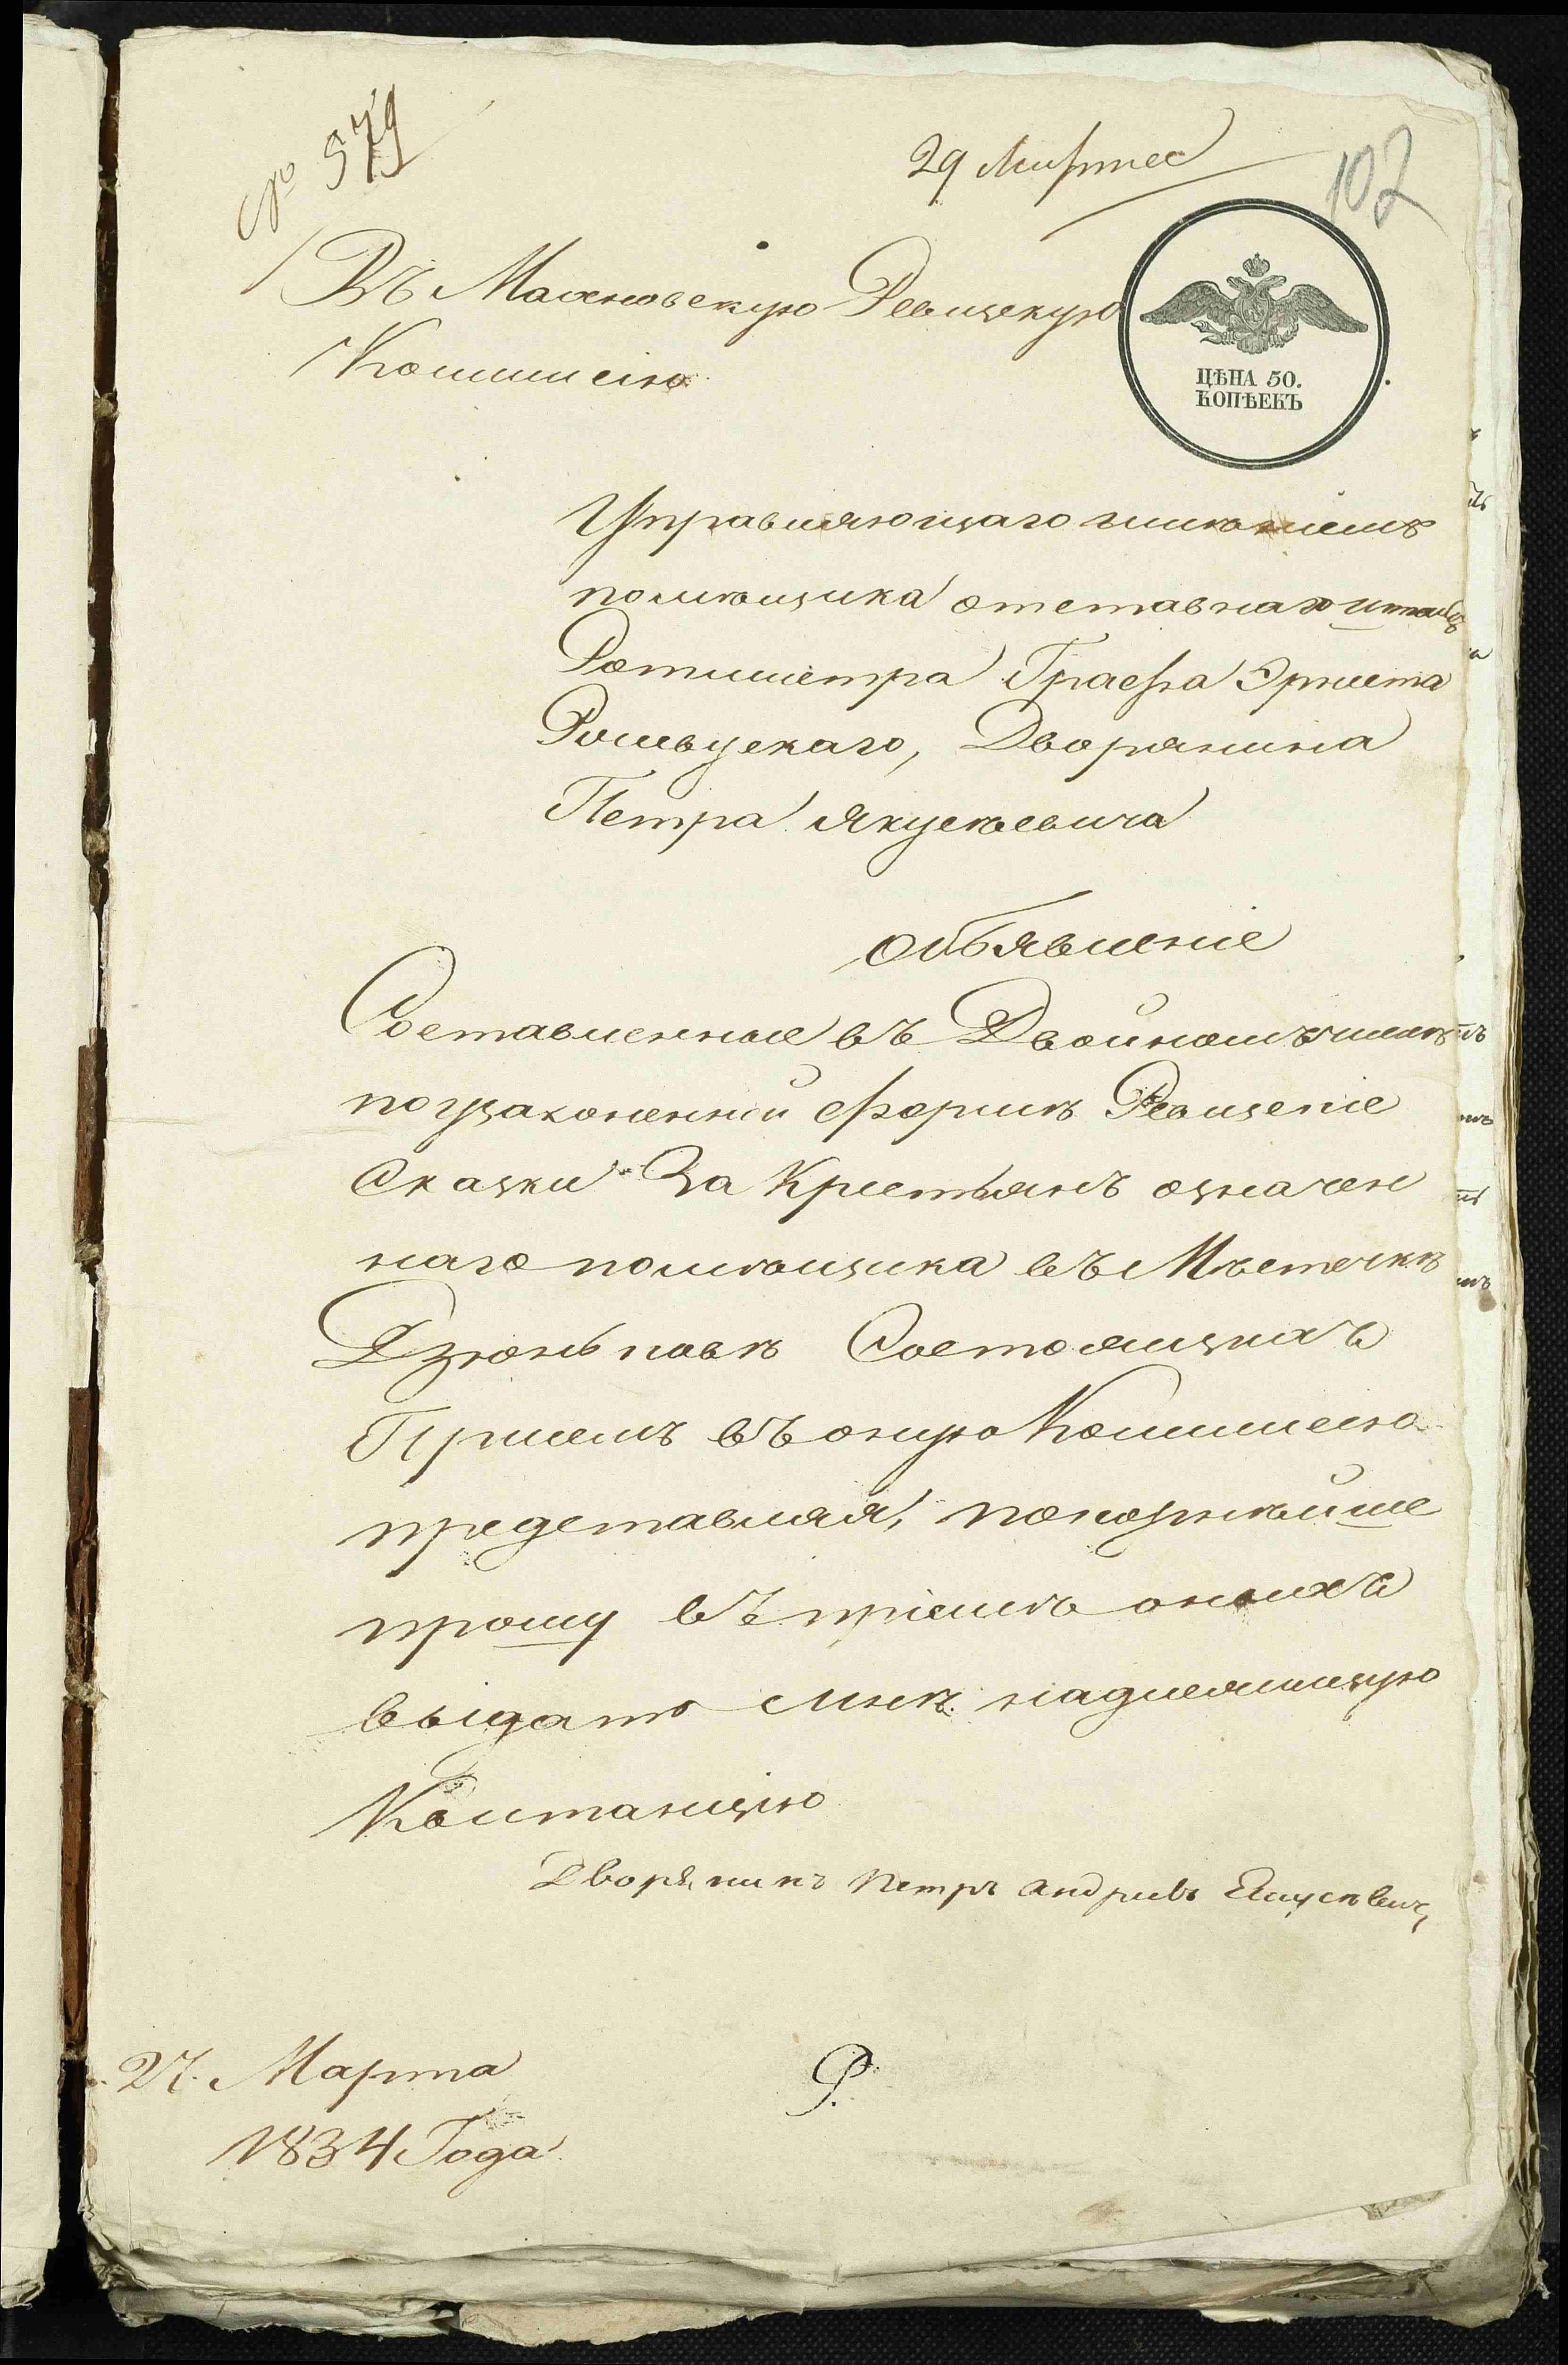 № 579
29 Марта
102
Въ Махновскую Ревизскую
Коммисію
ЦѢНА 50.
КОПѢЕКЪ
Управляющаго имѣніемъ
помѣщика отставнаго штабъ
Ротмистра Графа Эрнеста
Ромъускаго, Дворянина
Петра Якусѣевича
объявленіе
Составленные въ Двойномъ числѣ
по узаконенной формѣ Ревизскіе
Сказки За Крестьянъ означен
наго помѣщика въ Мѣстечкѣ
Дзюньковѣ Состоящихъ
При семъ въ оную Коммисію
представляя, покорнѣйше
прошу въ пріемѣ оныхъ
выдать мнѣ надлежащую
Квитанцію
Дворянинъ Петръ Андріевъ Якусѣвичъ
27. Марта
1834 Года
Р.